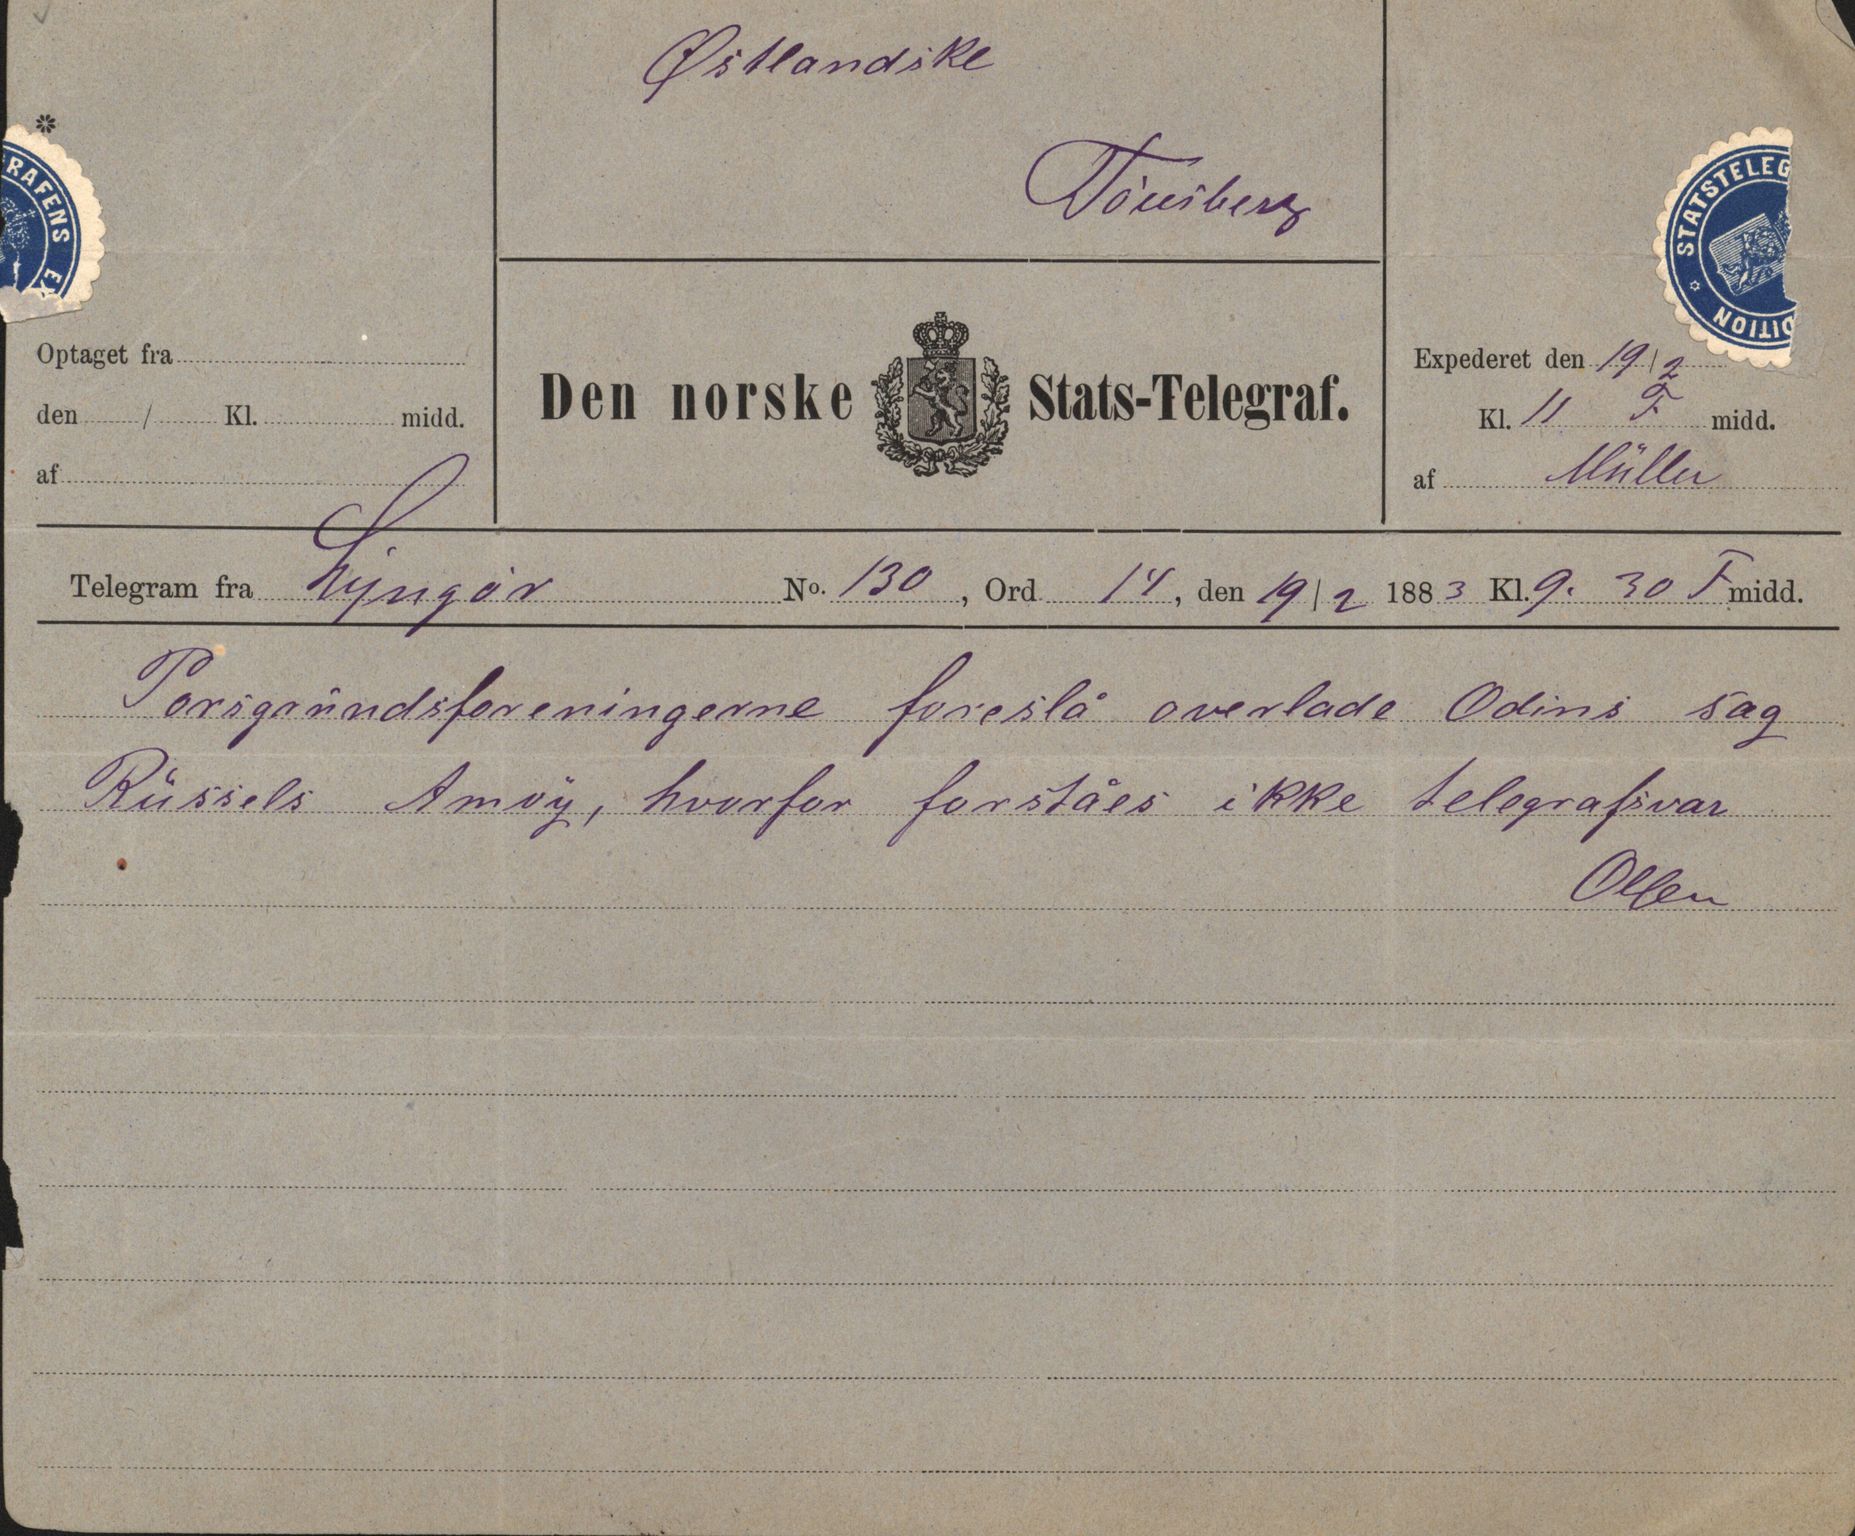 Østlandske
Tönsberg
*
RAFENS E
STATSTELEG
DITION
Optaget fra
den / Kl. midd.
af
Den norske Stats-Telegraf.
Expederet den 19/2
Kl. 11 F. midd.
af Müller
Telegram fra Lyngör No. 130, Ord 14, den 19/2 1883 Kl. 9. 30 F midd.
Porsgrŭndsforeningerne foreslå overlade Odins sag
Rŭssels Amoy, hvorfor forståes ikke telegrafsvar
Olsen